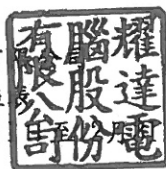 耀達電
腦股份
有限公司